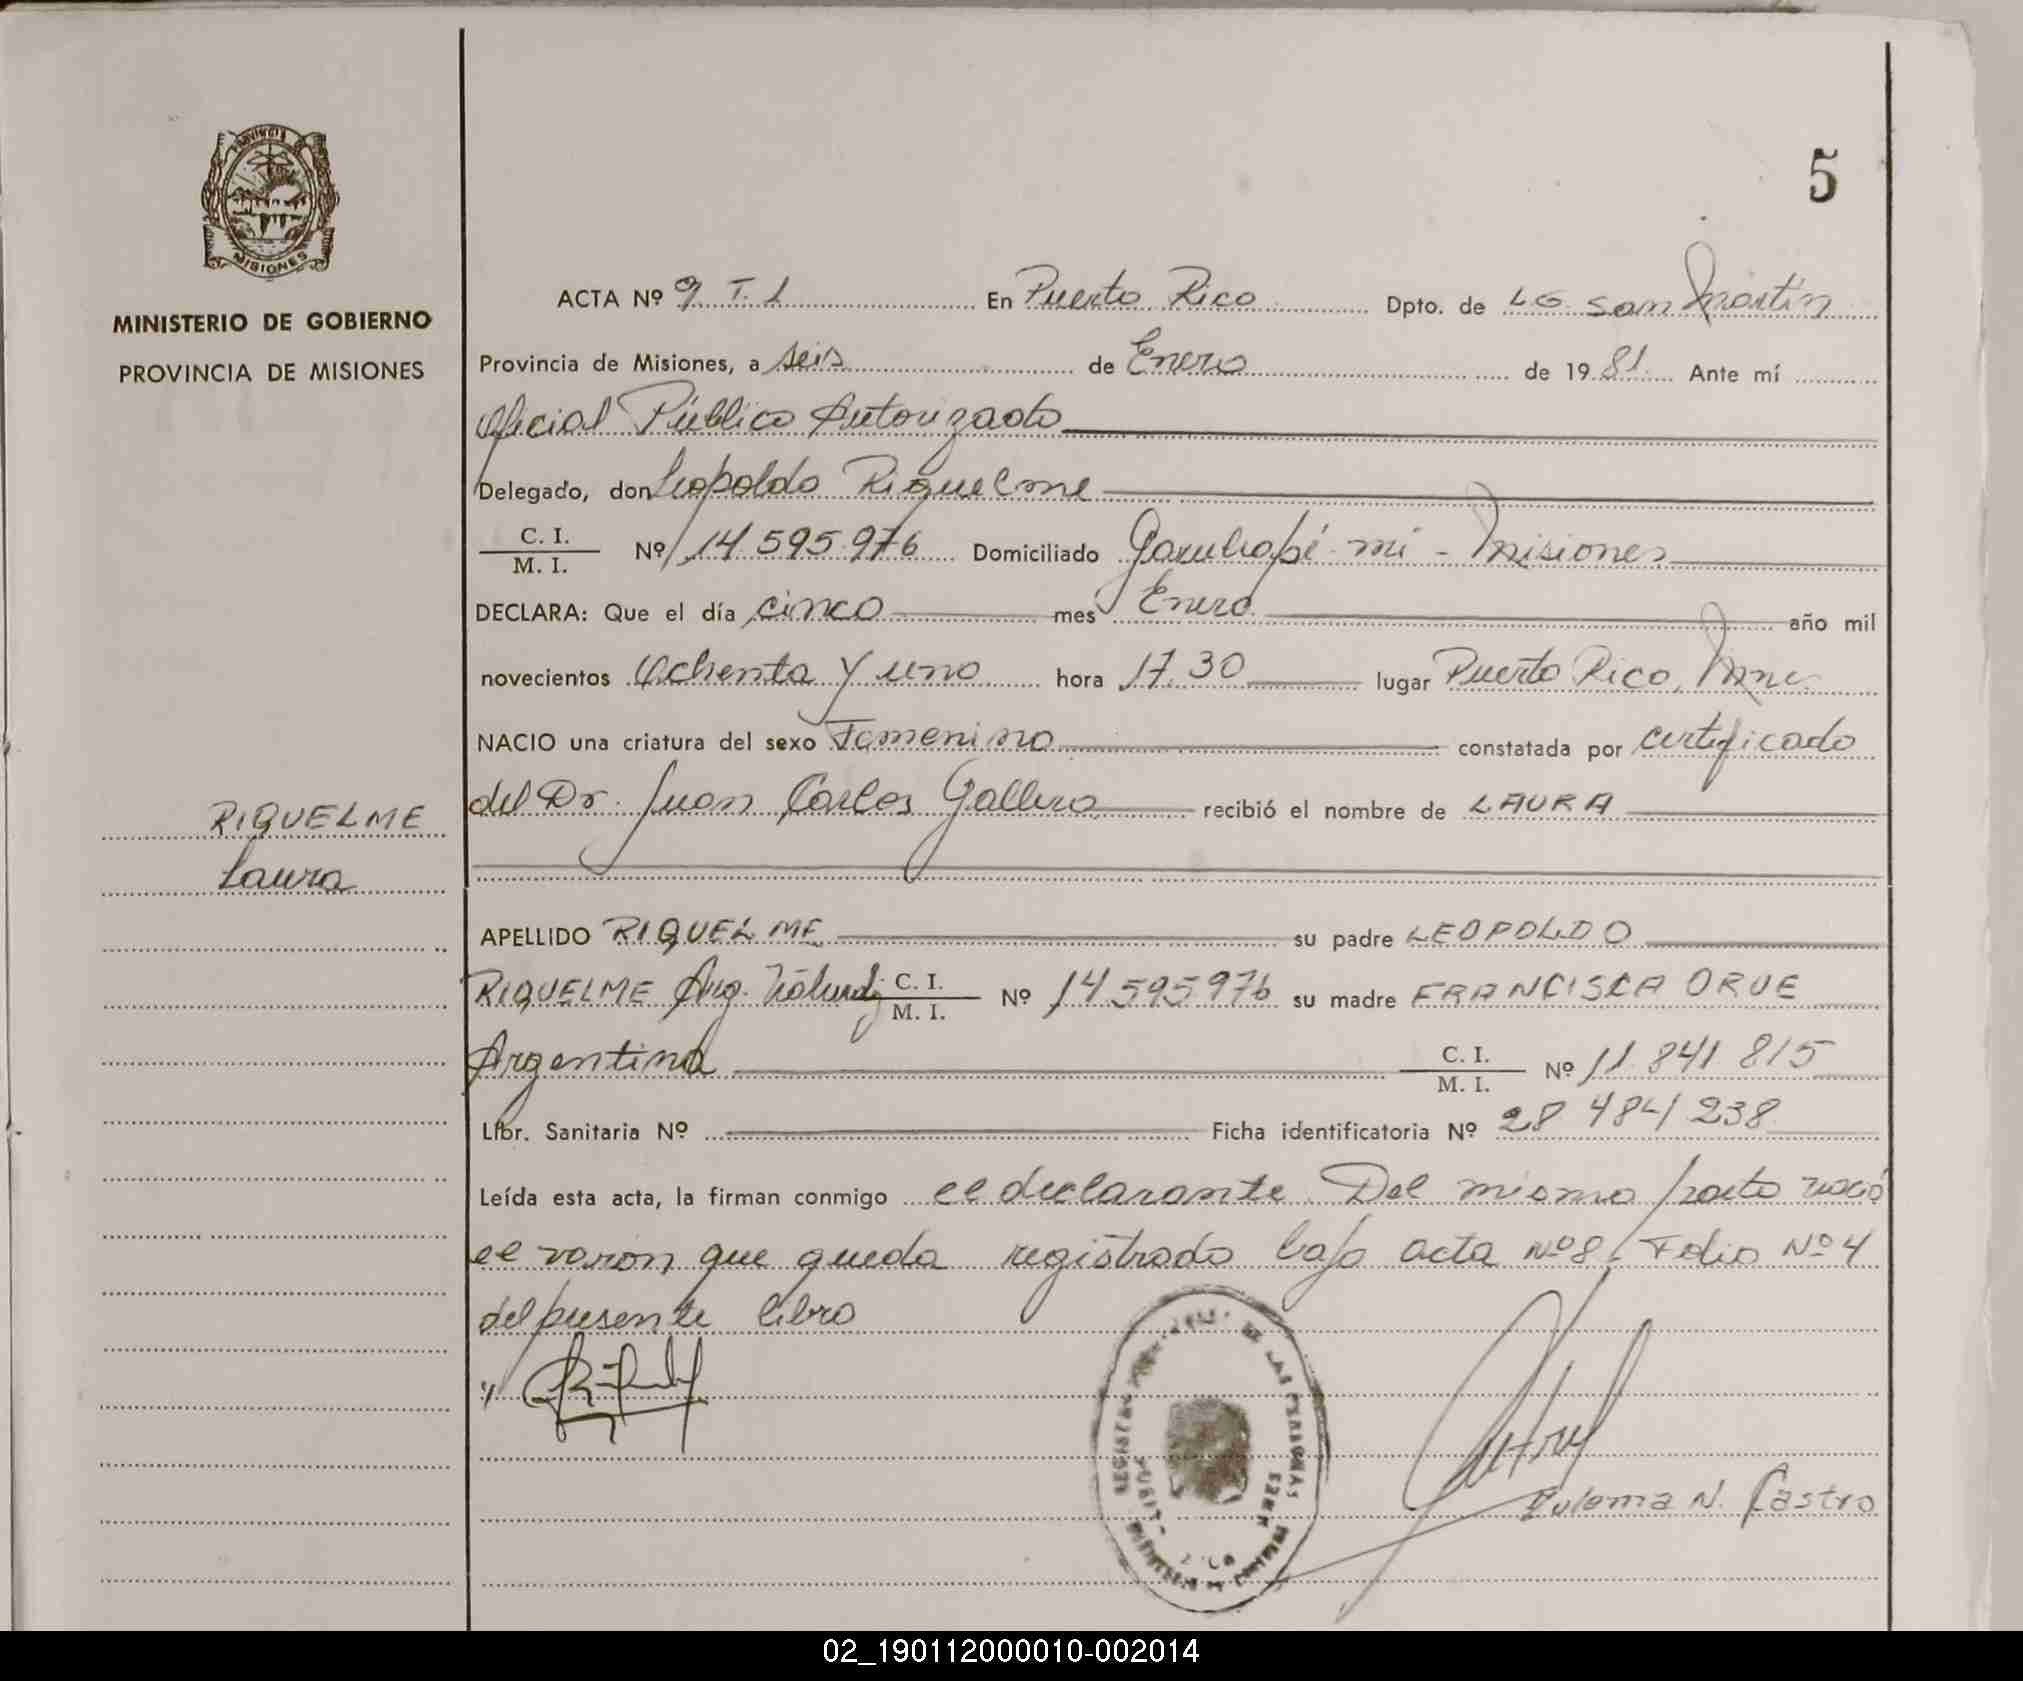 PROVINCIA
MISIONES
MINISTERIO DE GOBIERNO
PROVINCIA DE MISIONES
RIQUELME
Laura
5
ACTA Nº 9 T. 1 En Puerto Rico Dpto. de LG. San Martín
Provincia de Misiones, a seis de Enero de 1981. Ante mí
Oficial Público Autorizado
Delegado, don Leopoldo Riquelme
C. I.
M. I. Nº 14.595.976 Domiciliado Garuhapé-mí - Misiones
DECLARA: Que el día cinco mes Enero año mil
novecientos Ochenta y uno hora 17.30 lugar Puerto Rico, Mnes
NACIO una criatura del sexo Femenino constatada por certificado
del Dr. Juan Carlos Gallero recibió el nombre de LAURA
APELLIDO RIQUELME su padre LEOPOLDO
RIQUELME Arg. C. I.
M. I. Nº 14.595.976 su madre FRANCISCA ORUE
Argentina C. I.
M. I. Nº 11.841.815
Libr. Sanitaria Nº Ficha identificatoria Nº 28 484 238
Leída esta acta, la firman conmigo el declarante. Del mismo parto nació
el varón que queda registrado bajo acta Nº 8, Folio Nº 4
del presente libro
REGISTRO DE LAS PERSONAS
Zulema N. Castro
02_190112000010-002014